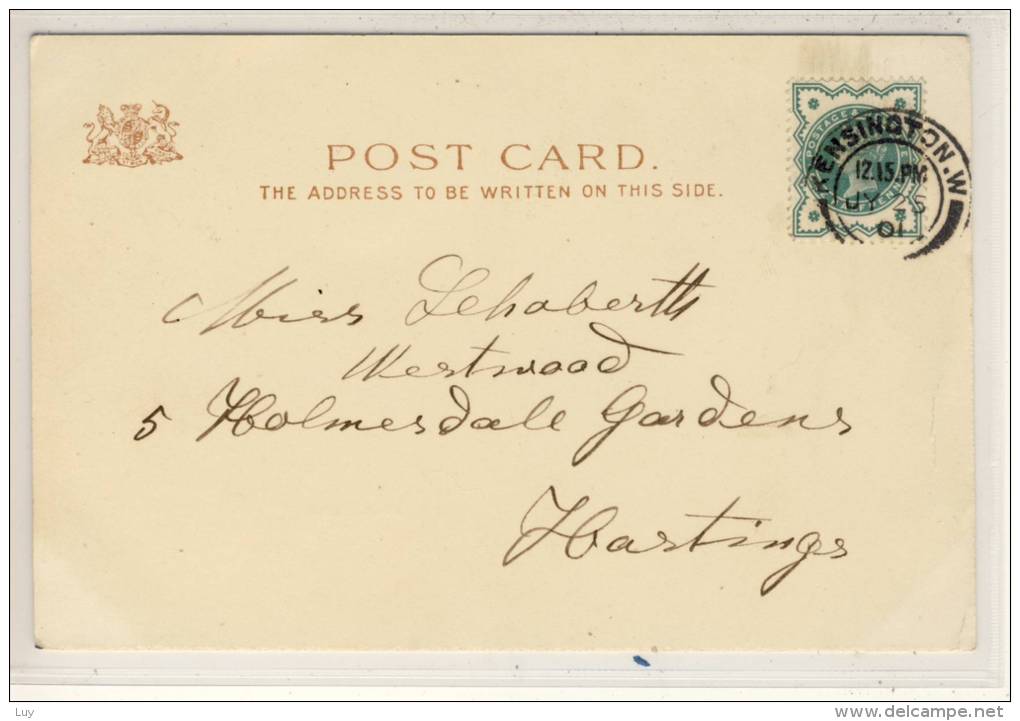 POST CARD.
THE ADDRESS TO BE WRITTEN ON THIS SIDE.
POSTAGE &
KENSINGTON. W
12.15.PM
JY 25
01
Miss Schoberth
Westwood
5 Holmesdale Gardens
Hastings
Luy